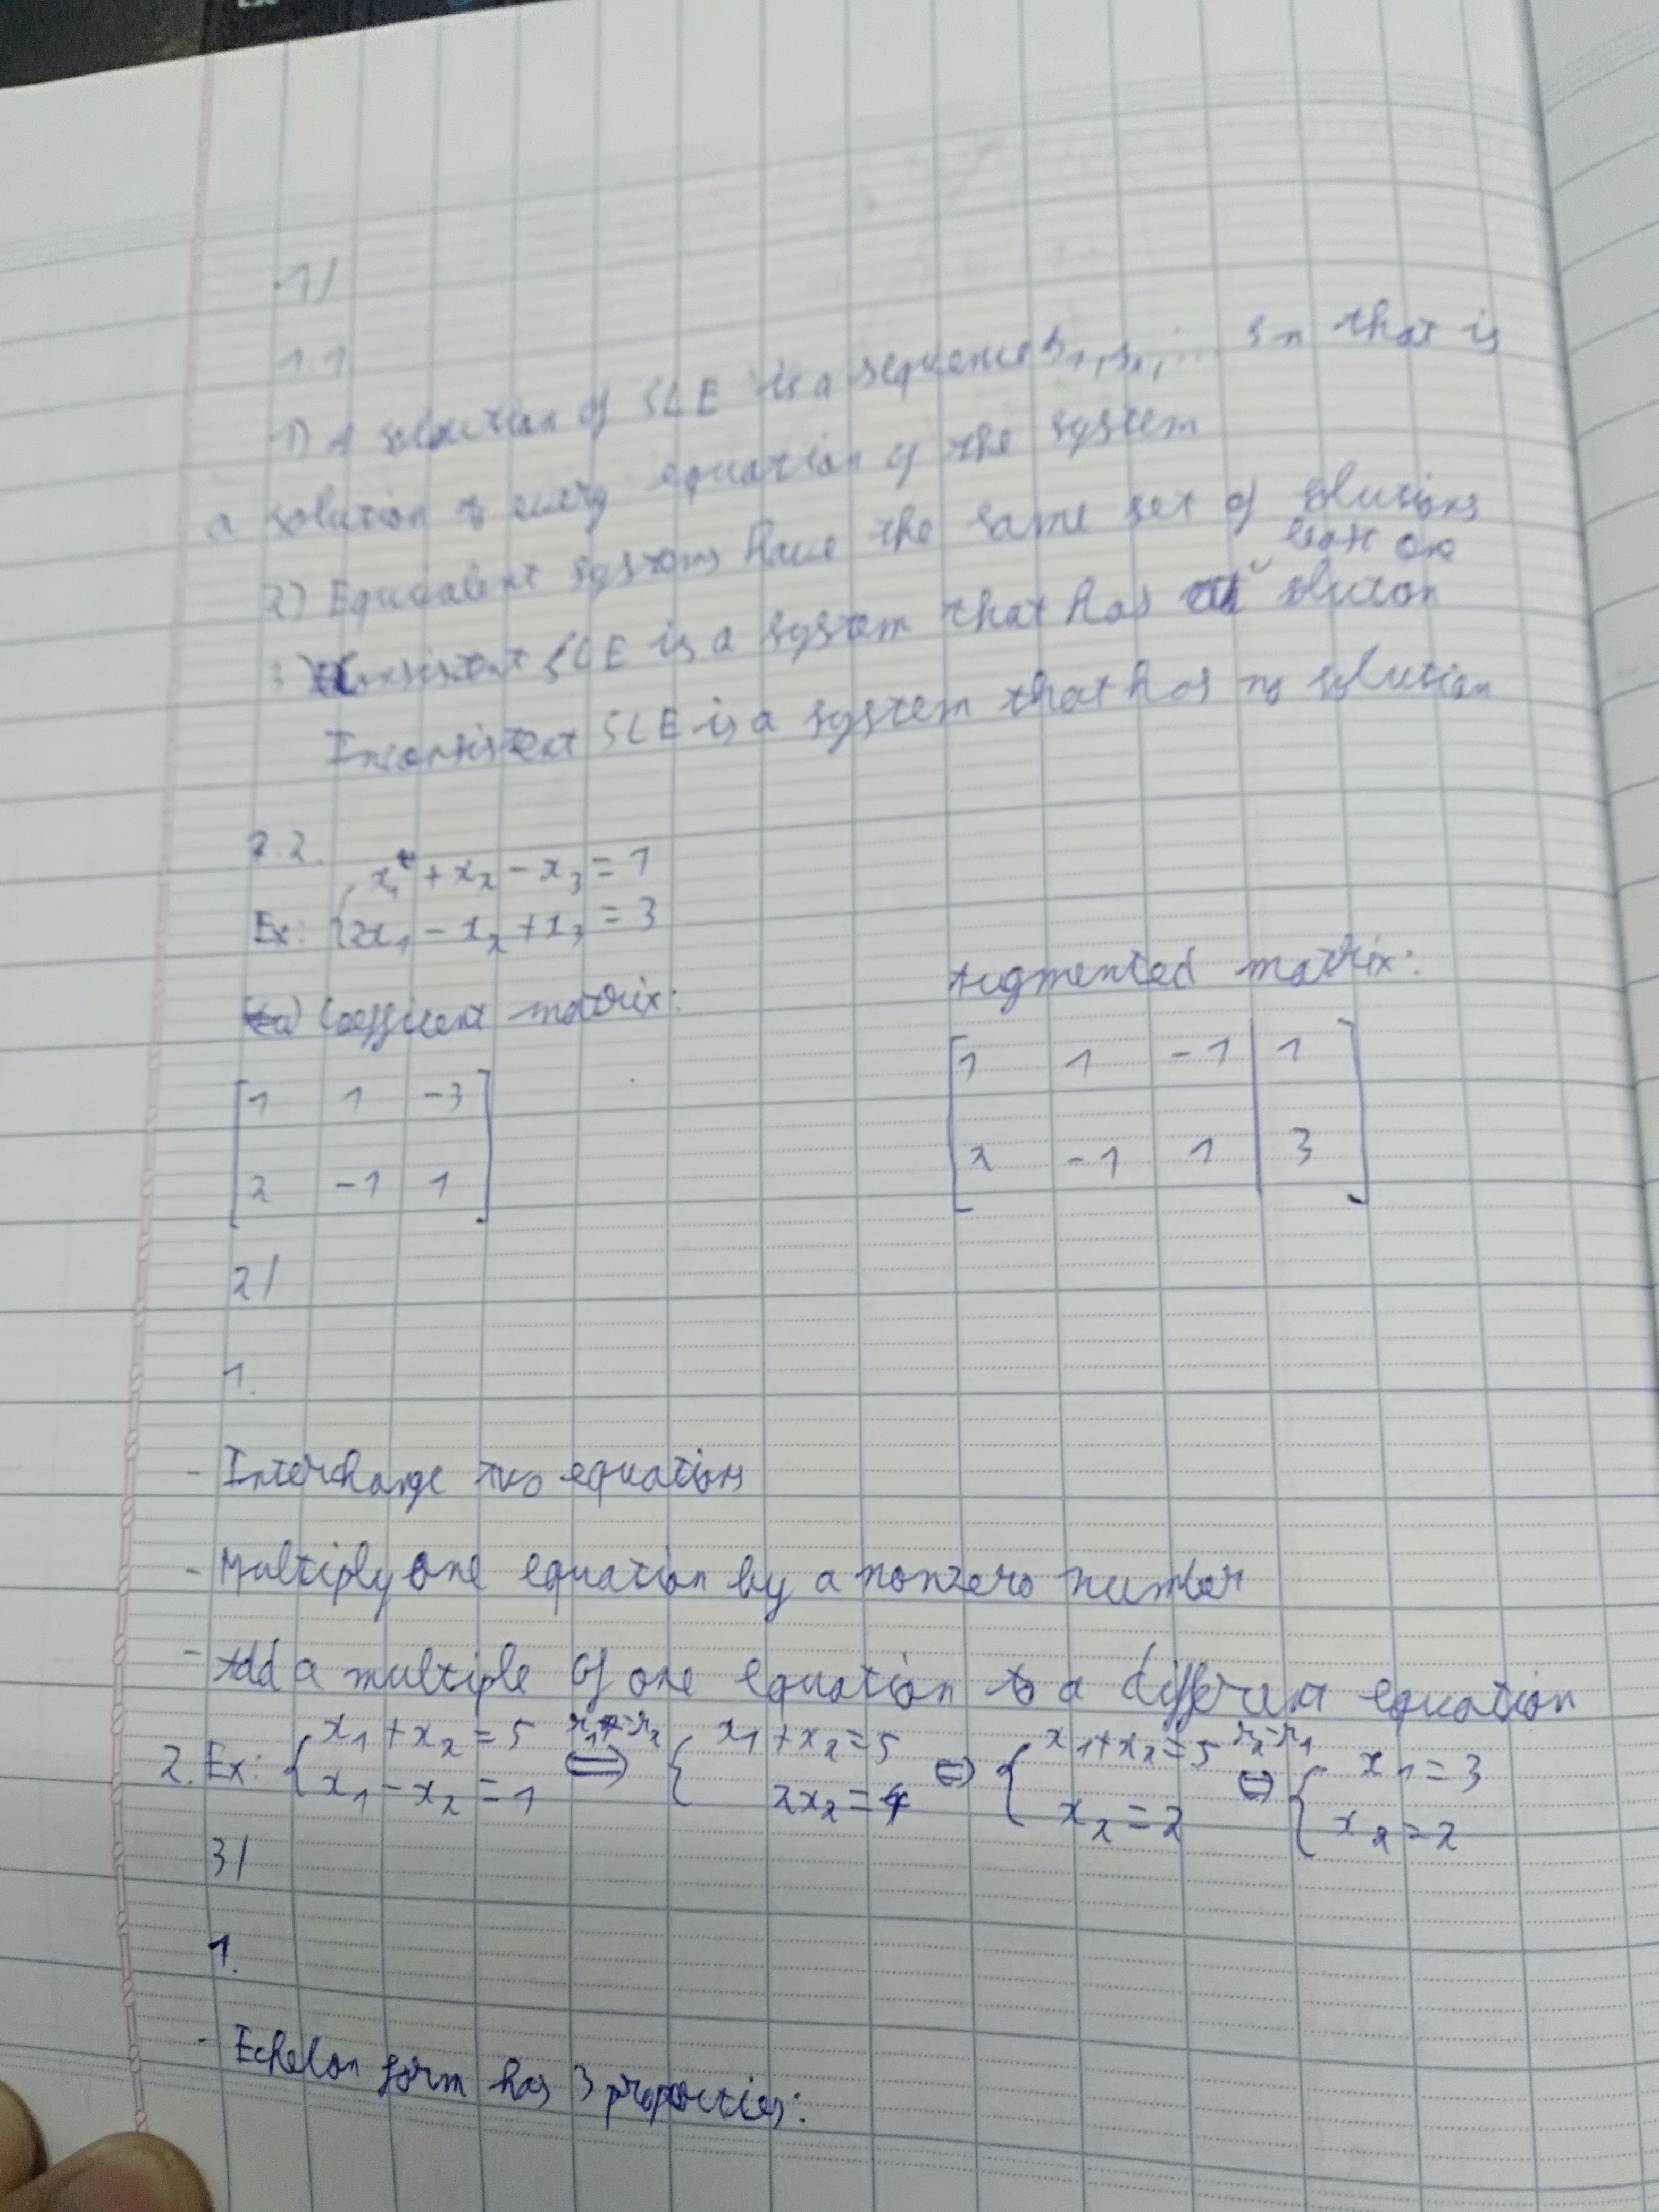 1/
1.1
1) A solution of SLE is a sequence s₁, s₁, ... sₙ that is
a solution to every equation of the system
2) Equivalent systems have the same set of solutions
least one
3) Consistent SLE is a system that has solution
Inconsistent SLE is a system that has no solution
2.2.
x₁ + x₂ - x₃ = 1
Ex: { 2x₁ - x₂ + x₃ = 3
Coefficient matrix:
Augmented matrix:
[ 1 1 -3 ]
[ 2 -1 1 ]
[ 1 1 -1 | 1 ]
[ 2 -1 1 | 3 ]
2/
1.
- Interchange two equations
- Multiply one equation by a nonzero number
- Add a multiple of one equation to a different equation
2. Ex: { x₁ + x₂ = 5 r₁-r₂ ⟺ { x₁ + x₂ = 5 ⟺ { x₁ + x₂ = 5 r₂-r₁ ⟺ { x₁ = 3
x₁ - x₂ = 1 2x₂ = 4 x₂ = 2 x₂ = 2
3/
1.
- Echelon form has 3 properties: